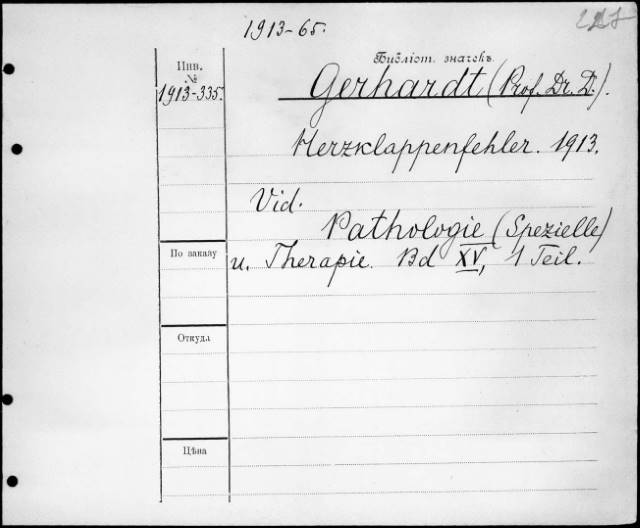 1913-65.
Инв.
№
1913-335.
Библіот. значекъ.
Gerhardt (Prof. Dr. D.).
Herzklappenfehler. 1913.
Vid.
Pathologie (Spezielle)
u. Therapie. Bd XV, 1 Teil.
По заказу
Откуда
Цѣна